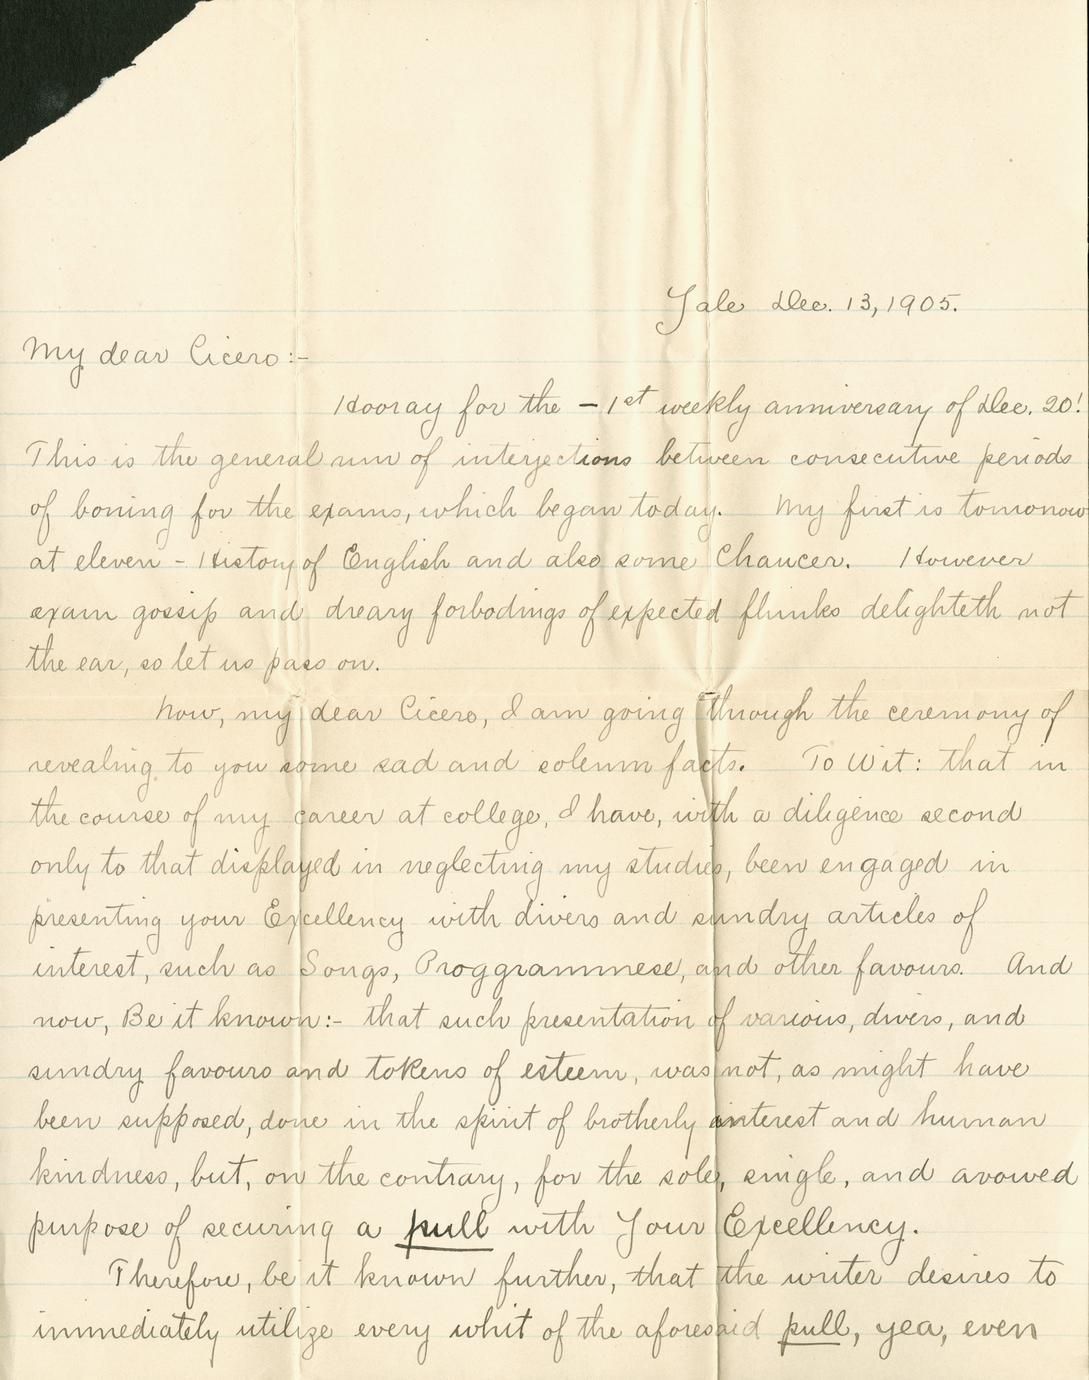 Yale Dec. 13, 1905.
My dear Cicero:-
Hooray for the -1st weekly anniversary of Dec. 20!
This is the general run of interjections between consecutive periods
of boning for the exams, which began today. My first is tomorrow
at eleven - History of English and also some Chaucer. However
exam gossip and dreary forbodings of expected flunks delighteth not
the ear, so let us pass on.
Now, my dear Cicero, I am going through the ceremony of
revealing to you some sad and solemn facts. To Wit: that in
the course of my career at college, I have, with a diligence second
only to that displayed in neglecting my studies, been engaged in
presenting your Excellency with divers and sundry articles of
interest, such as Songs, Proggrammese, and other favours. And
now, Be it known:- that such presentation of various, divers, and
sundry favours and tokens of esteem, was not, as might have
been supposed, done in the spirit of brotherly interest and human
kindness, but, on the contrary, for the sole, single, and avowed
purpose of securing a pull with Your Excellency.
Therefore, be it known further, that the writer desires to
immediately utilize every whit of the aforesaid pull, yea, even